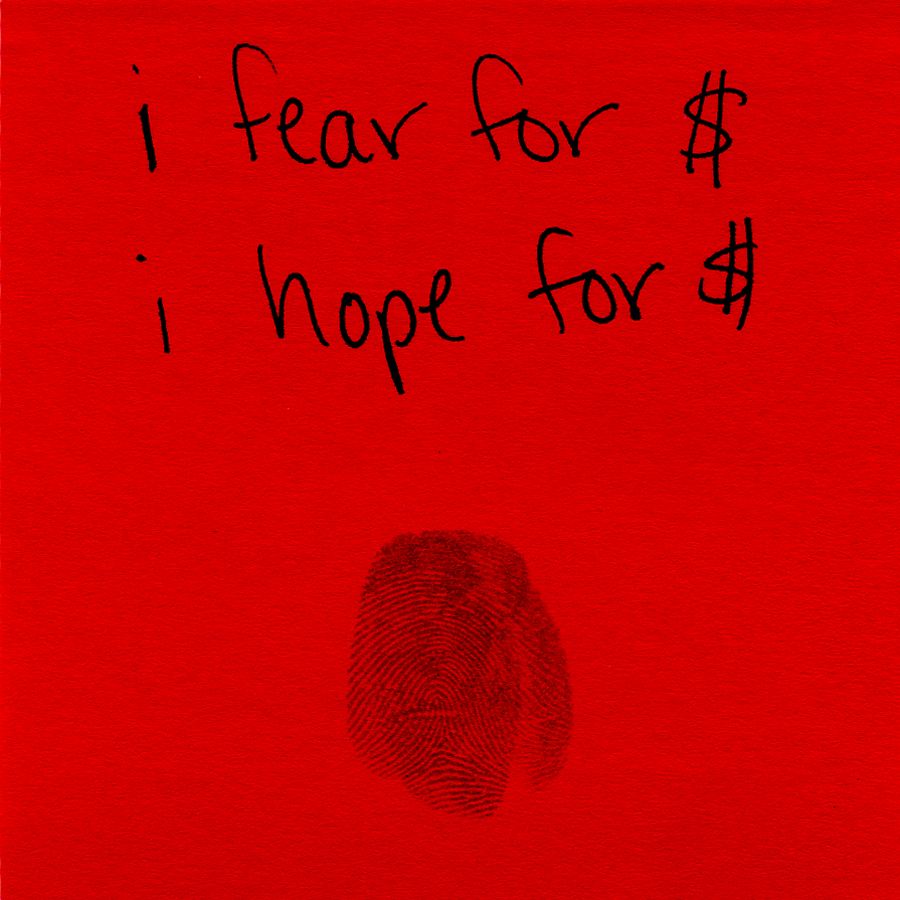 i fear for $
i hope for $